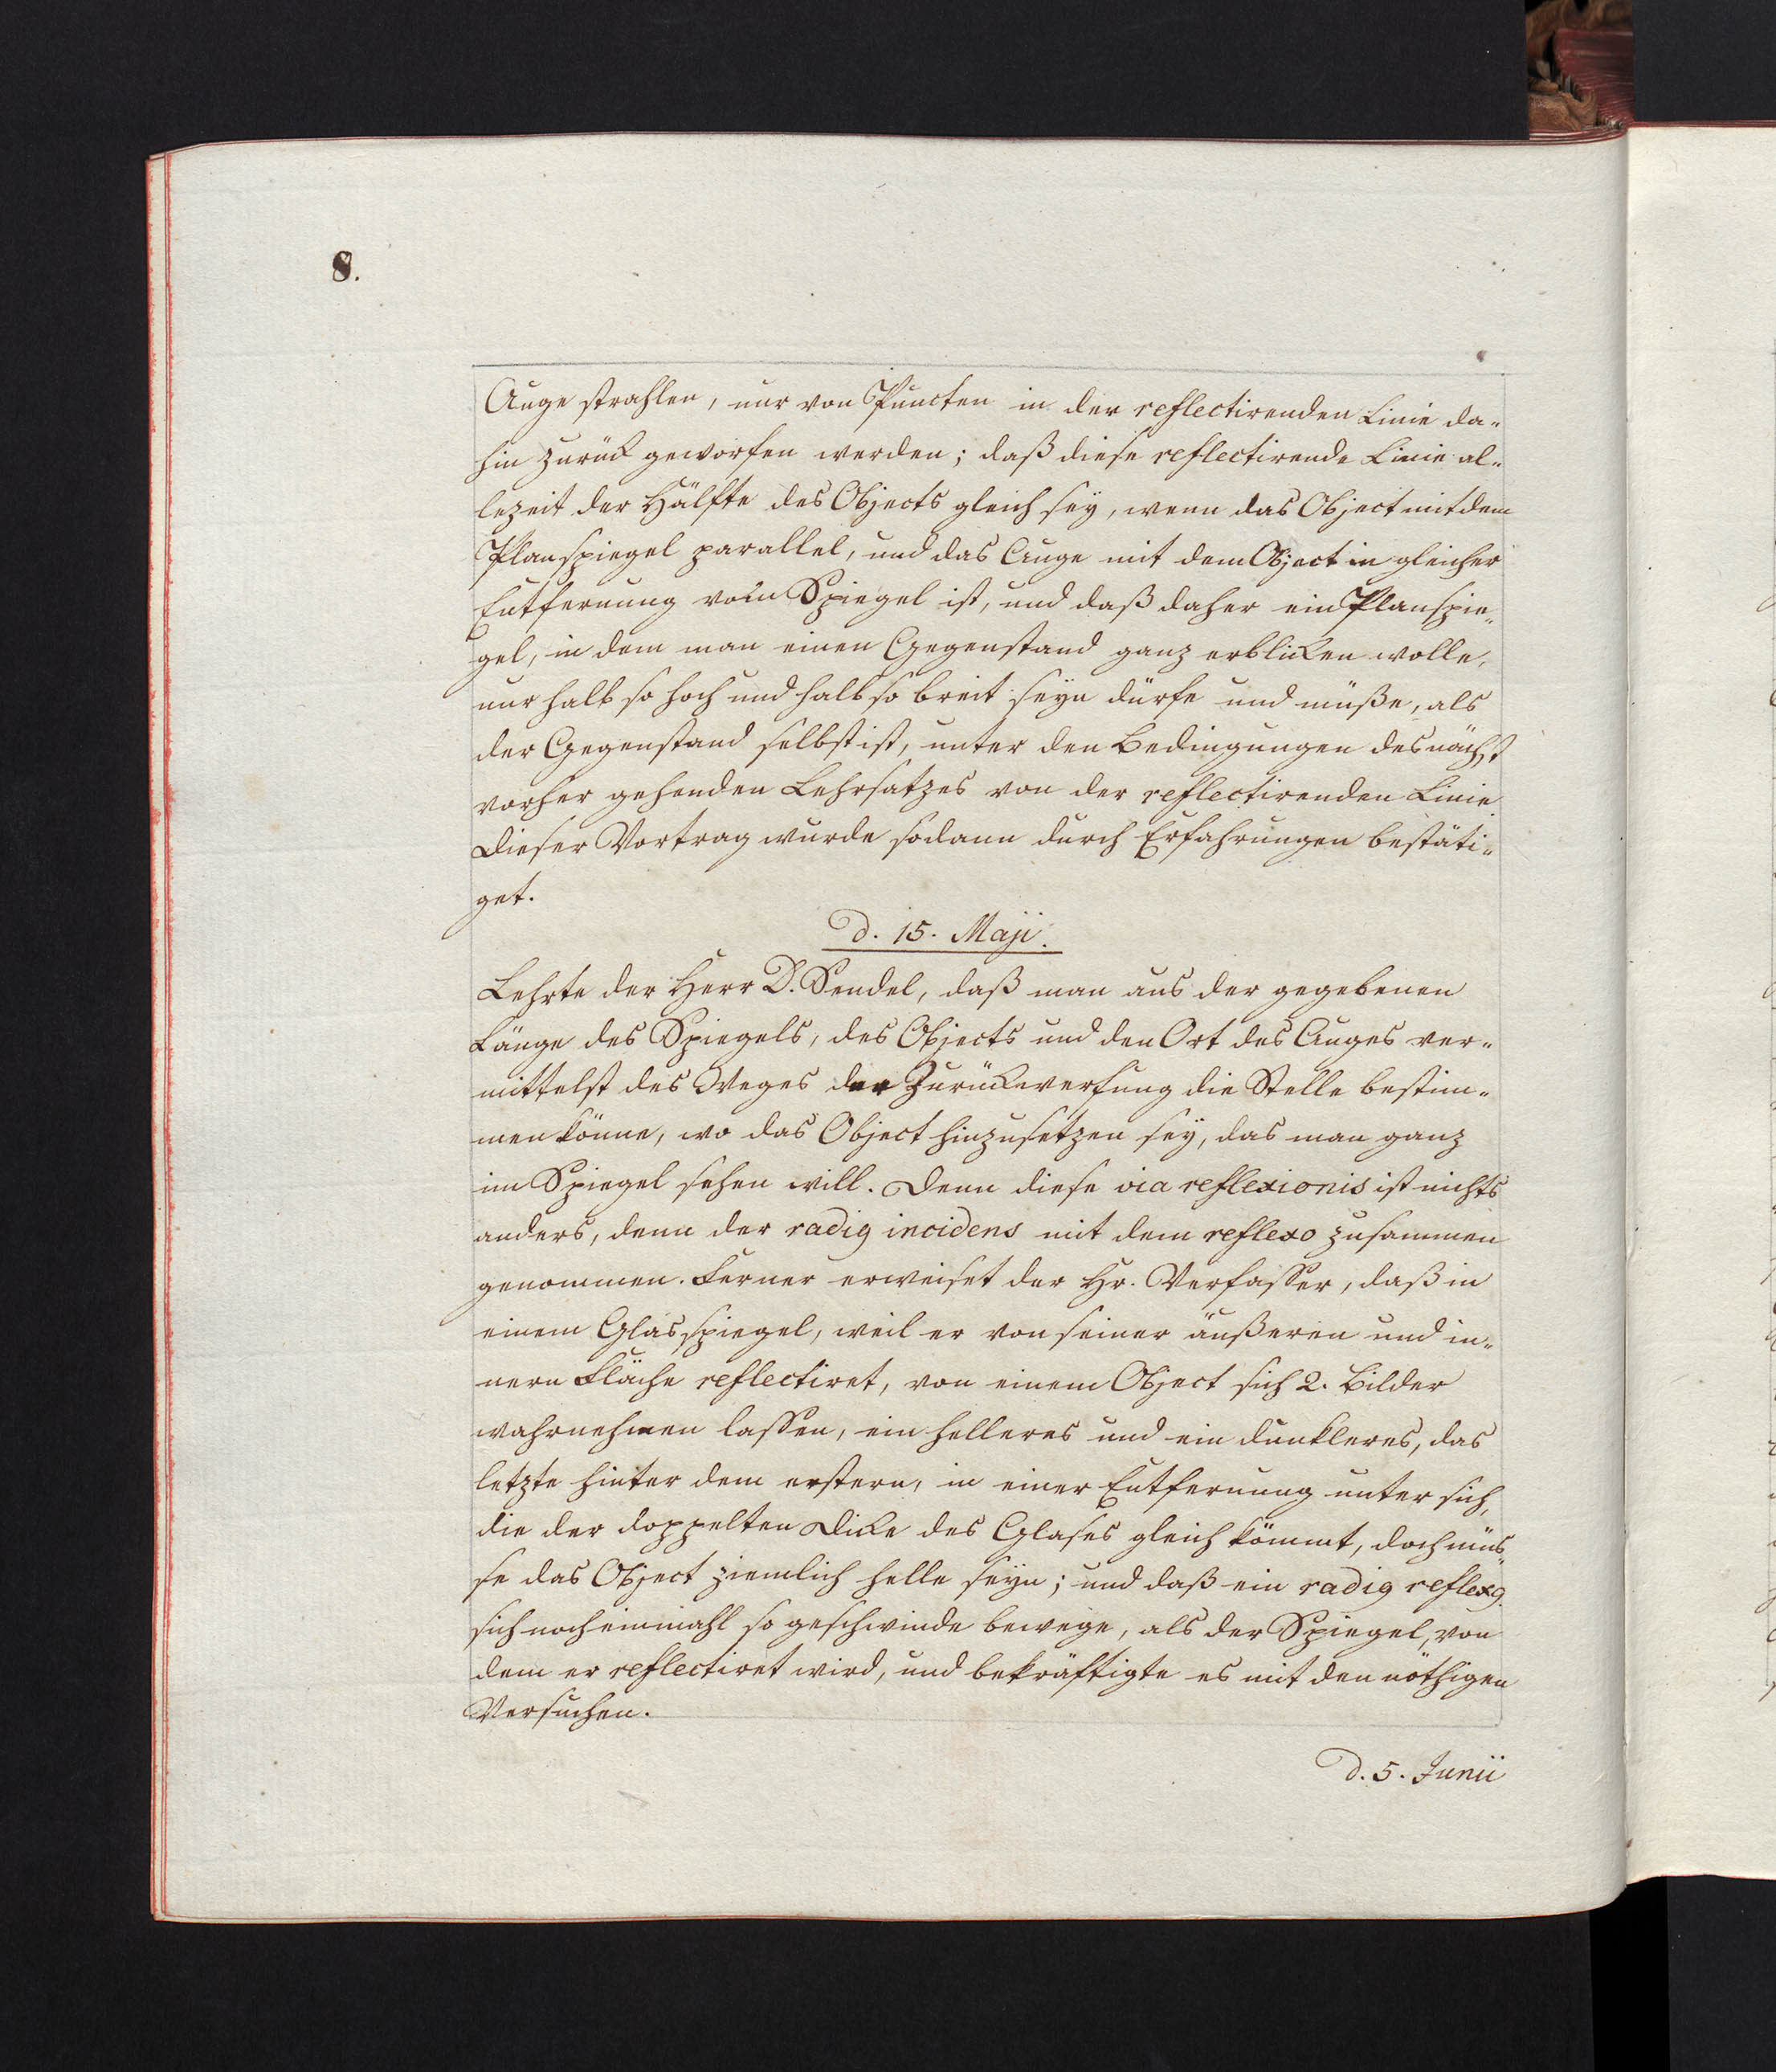 8.
Auge strahlen, nur von Puncten in der reflectirenden Linie da-
hin zurück geworfen werden; daß diese reflectirende Linie al-
lezeit der Hälfte des Objects gleich sey, wenn das Object mit dem
Planspiegel parallel, und das Auge mit dem Object in gleicher
Entfernung vom Spiegel ist, und daß daher ein Planspie-
gel, in dem man einen Gegenstand ganz erblicken wolle,
nur halb so hoch und halb so breit seyn dürfe und müße, als
der Gegenstand selbst ist, unter den Bedingungen des nächst
vorher gehenden Lehrsatzes von der reflectirenden Linie
Dieser Vortrag wurde sodann durch Erfahrungen bestäti-
get.
d. 15. Maji.
Lehrte der Herr D. Sendel, daß man aus der gegebenen
Länge des Spiegels, des Objects und den Ort des Auges ver-
mittelst des Weges der Zurückwerfung die Stelle bestim-
men könne, wo das Object hinzusetzen sey, das man ganz
im Spiegel sehen will. Denn diese via reflexionis ist nichts
anders, denn der radig incidens mit dem reflexo zusammen
genommen. Ferner erweiset der Hr. Verfasser, daß in
einem Glasspiegel, weil er von seiner äußeren und in-
nern Fläche reflectiret, von einem Object sich 2. Bilder
wahrnehmen lassen, ein helleres und ein dunkleres, das
letzte hinter dem erstern, in einer Entfernung unter sich,
die der doppelten Dicke des Glases gleich kömmt, doch müs-
se das Object ziemlich helle seyn; und daß ein radig reflexg.
sich noch einmahl so geschwinde bewege, als der Spiegel, von
dem er reflectiret wird, und bekräftigte es mit den nöthigen
Versuchen.
d. 5. Junii